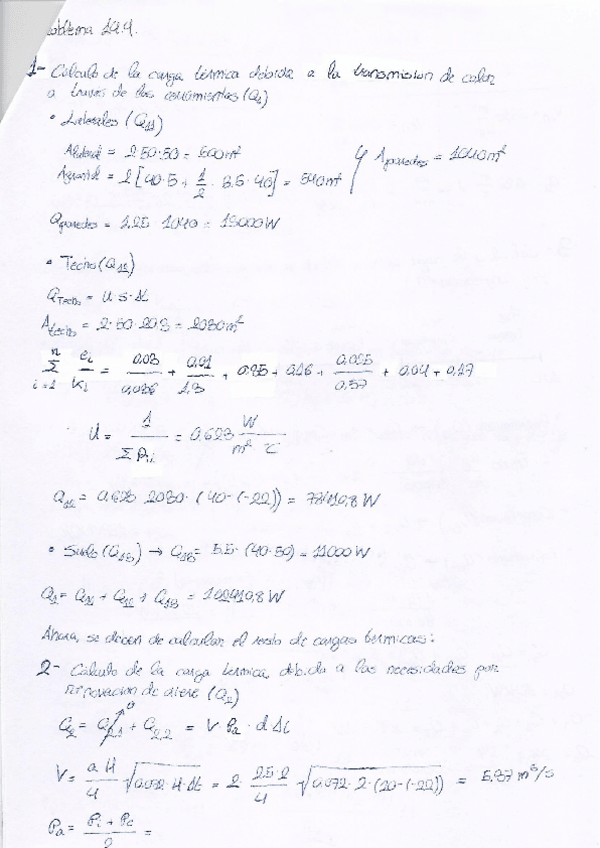 Problema 19.9.
1- Cálculo de la carga térmica debida a la transmision de calor
a través de los cerramientos (Q1)
• Laterales (Q11)
Alateral = 2·50·50 = 500m²
Afrontal = 2[40·5 + 1/2 · 3.5·40] = 540m² } Aparedes = 1040m²
Qparedes = 1.25 · 1040 = 13000W
• Techo (Q12)
QTecho = U·S·Δt
Atecho = 2·50·20.8 = 2080m²
n Σ i=1 ei/Ki = 0.03/0.036 + 0.01/1.3 + 0.85 + 0.16 + 0.025/0.57 + 0.04 + 0.17
U = 1/ΣRi = 0.623 W/m² °C
Q12 = 0.623 · 2080 · (40-(-22)) = W
• Suelo (Q13) → Q13 = 5.5 · (40·50) = 11000W
Q1 = Q11 + Q12 + Q13 = W
Ahora, se deben de calcular el resto de cargas térmicas:
2- Cálculo de la carga térmica debida a las necesidades por
renovacion de aire (Q2)
Q2 = Q2.1 + Q2.2 = V · ρa · d Δi
0
V = a·H/4 √0.072·H·Δt = 2 · 2.5·2/4 √0.072·2·(20-(-22)) = 5.87 m³/s
ρa = ρi + ρe/2 =